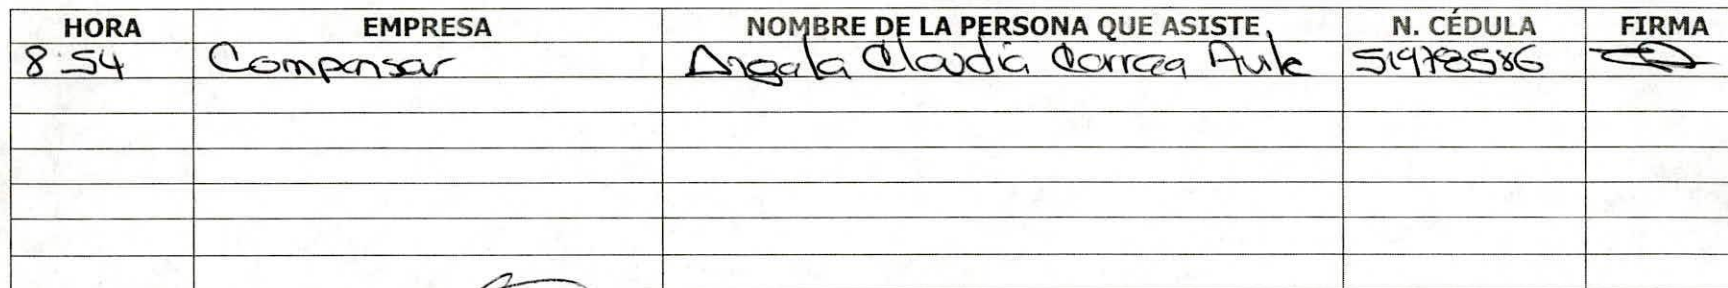 HORA EMPRESA NOMBRE DE LA PERSONA QUE ASISTE N. CÉDULA FIRMA
8:54 Compensar Angela Claudia Correa Avila 51978586